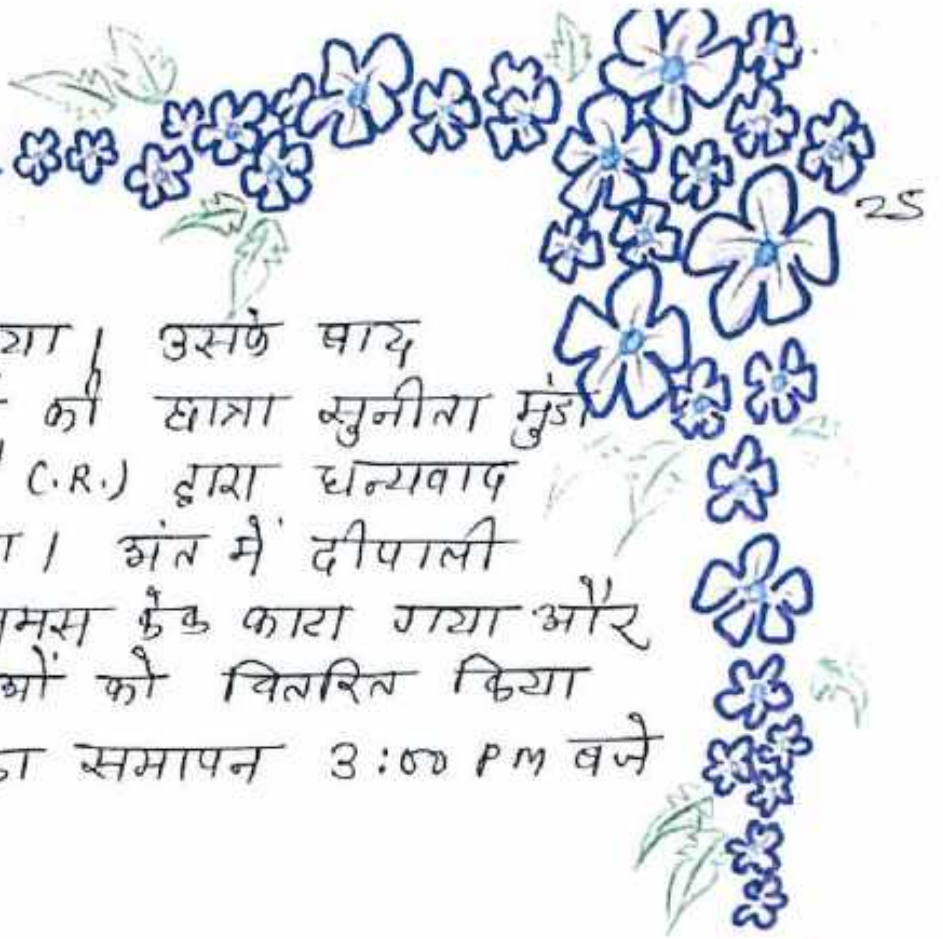 25
या । उसके बाद
की छात्रा सुनीता मुंडा
(C.R.) द्वारा धन्यवाद
ा । अंत में दीपाली
मस केक काटा गया और
ओं को वितरित किया
ा समापन 3:00 PM बजे